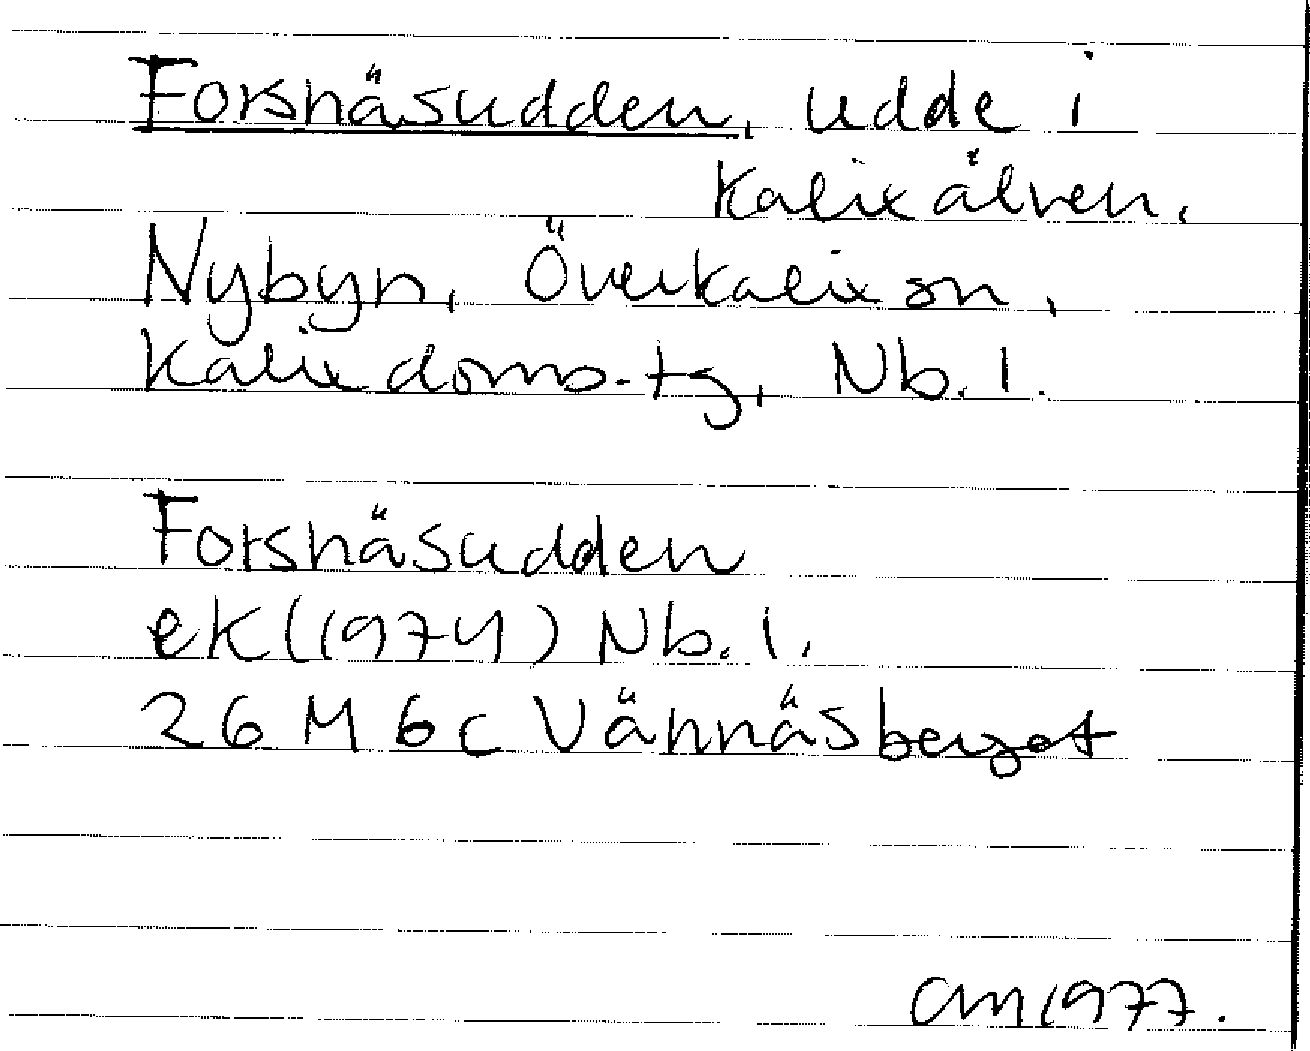 Forsnäsudden, udde i
Kalixälven.
Nybyn, Överkalix sn,
Kalix doms.tg, Nb.l.
Forsnäsudden
ek (1974) Nb.l.
26 M 6c Vännäsberget
CM 1977.